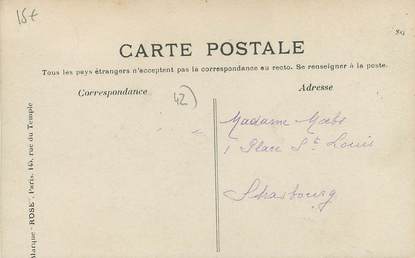 15€
CARTE POSTALE
Tous les pays étrangers n'acceptent pas la correspondance au recto. Se renseigner à la poste.
Correspondance
Adresse
42
Madame Mochs
1 Place St Louis
Strasbourg
Marque "ROSE", Paris, 145, rue du Temple